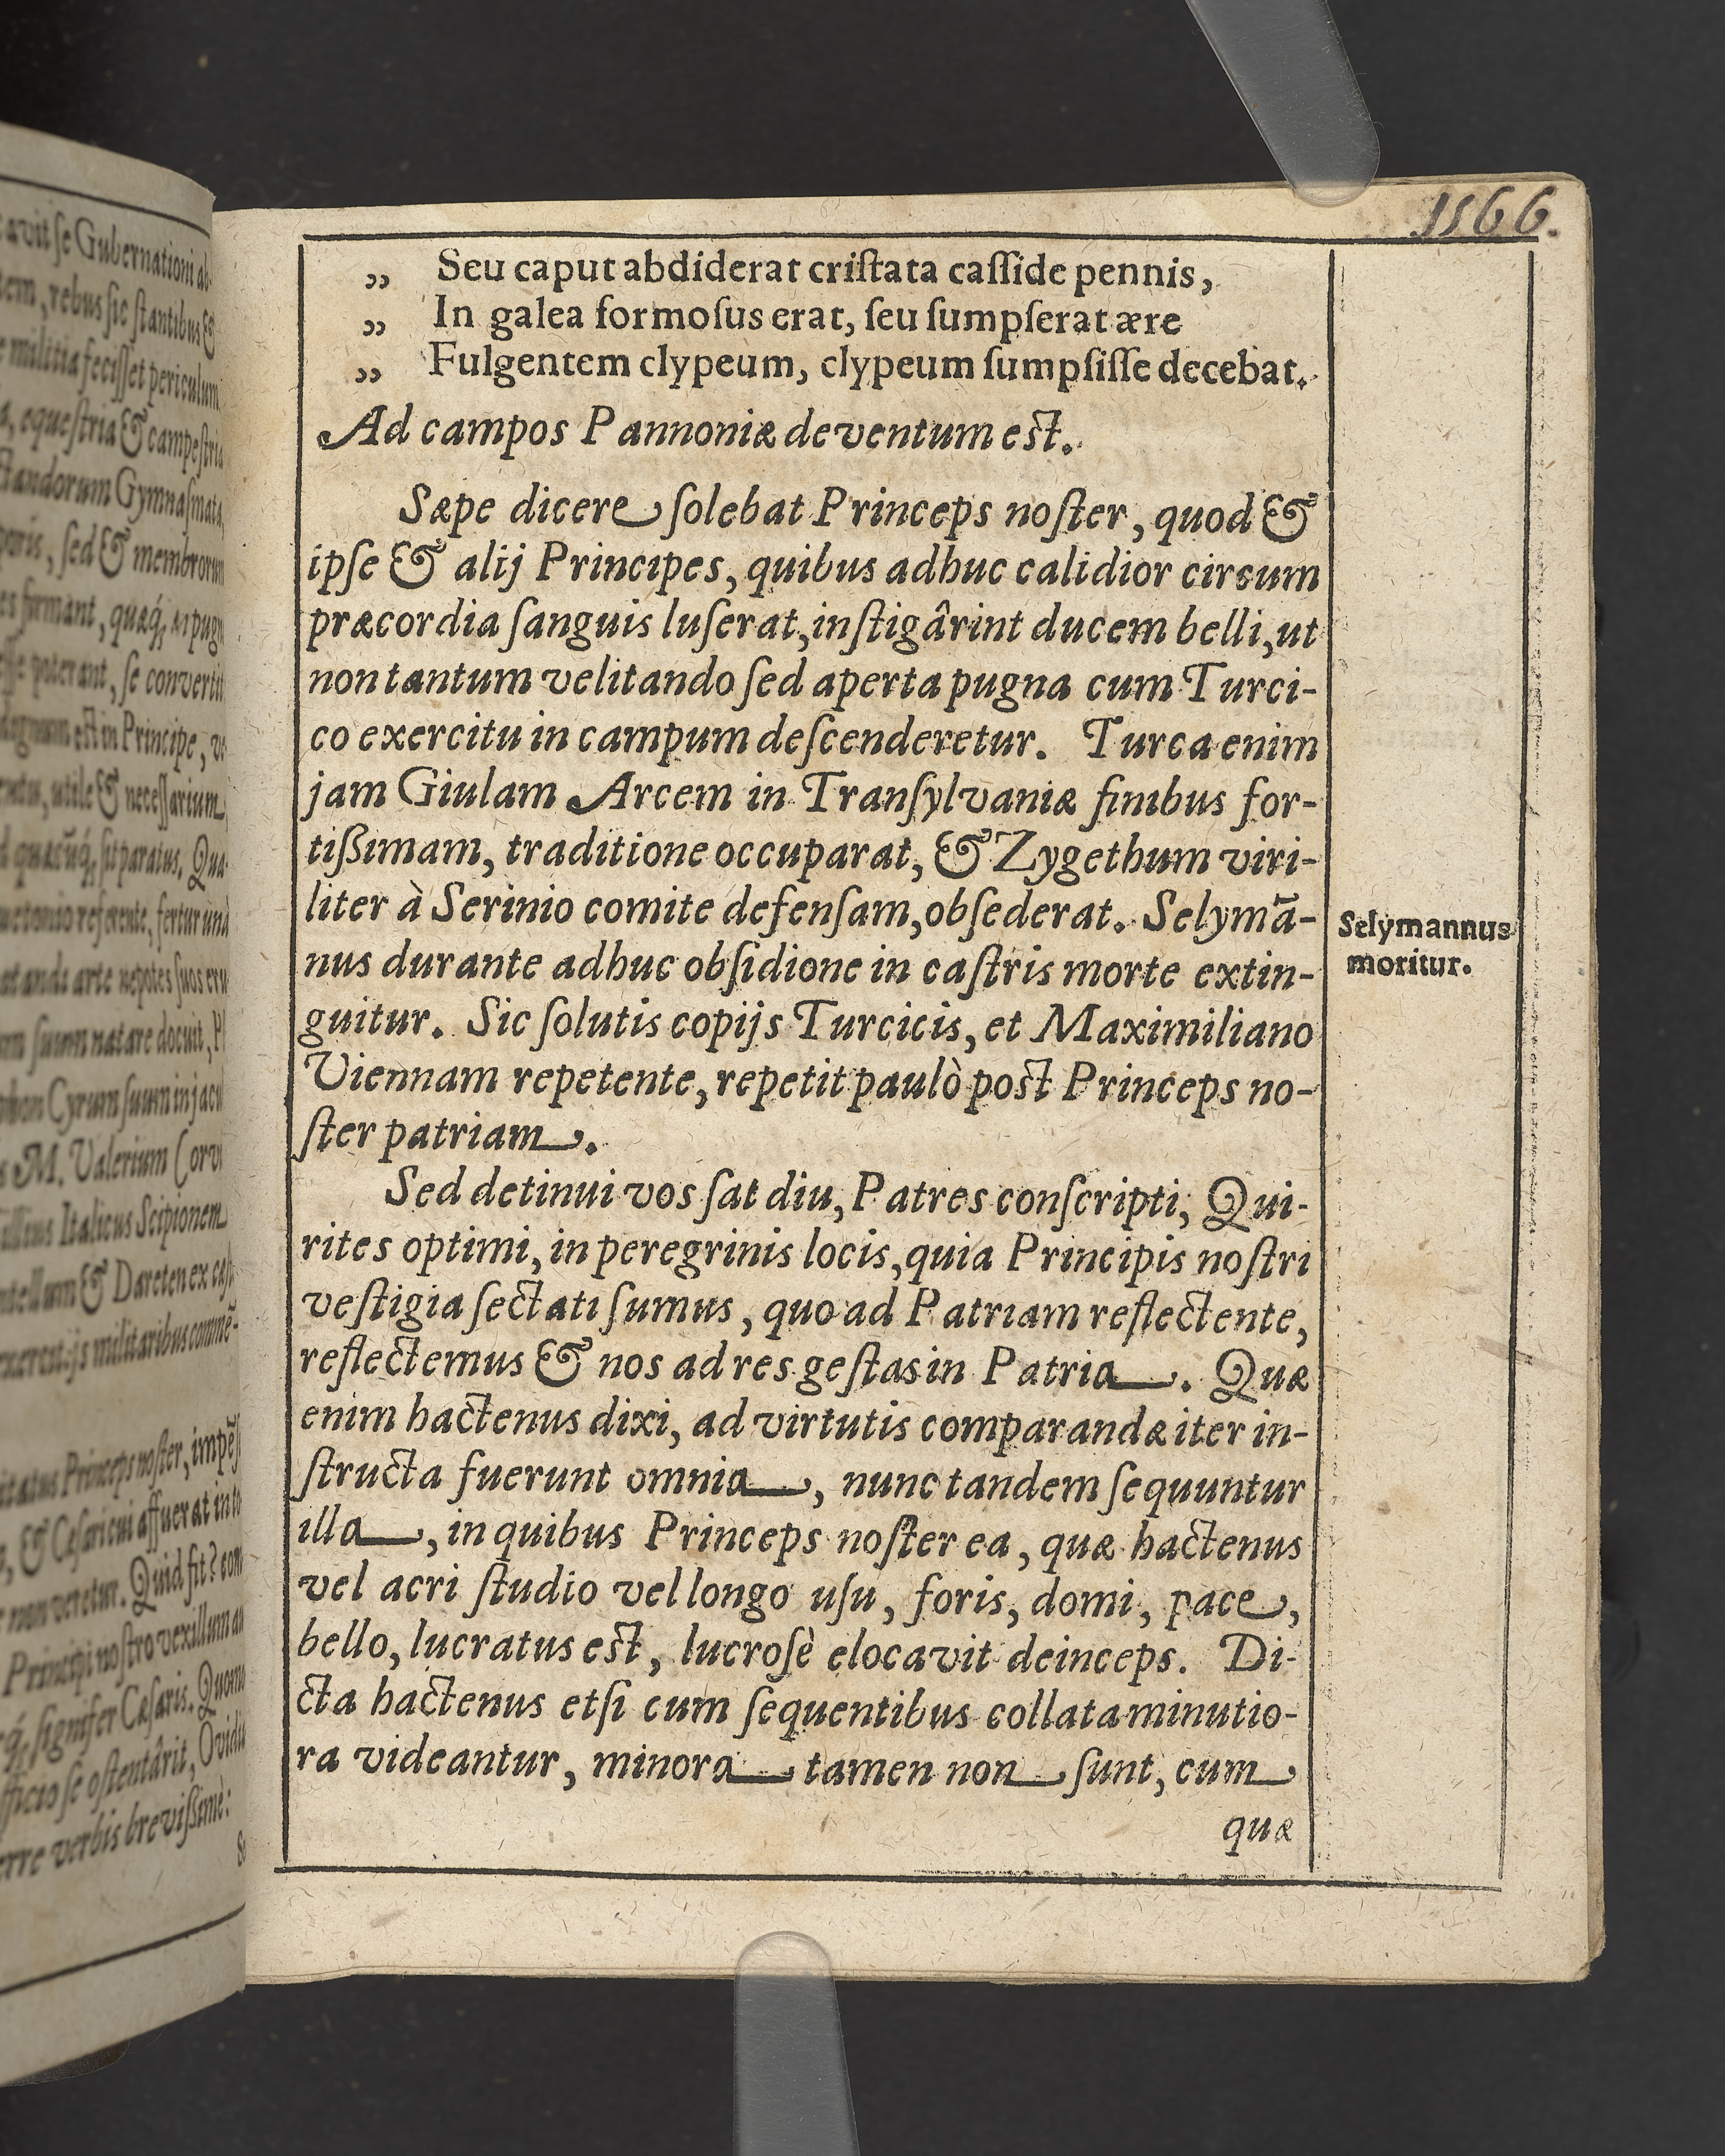 1566.
„ Seu caput abdiderat criſtata caſſide pennis,
„ In galea formoſus erat, ſeu ſumpſerat ære
„ Fulgentem clypeum, clypeum ſumpſiſſe decebat.
Ad campos Pannoniæ deventum est.
Sæpe dicere ſolebat Princeps noſter, quod &
ipſe & alij Principes, quibus adhuc calidior circum
præcordia ſanguis luſerat, inſtigârint ducem belli, ut
non tantum velitando ſed aperta pugna cum Turci-
co exercitu in campum deſcenderetur. Turca enim
jam Giulam Arcem in Tranſylvaniæ finibus for-
tißimam, traditione occuparat, & Zygethum viri-
liter à Serinio comite defenſam, obſederat. Selymã-
nus durante adhuc obſidione in caſtris morte extin-
guitur. Sic ſolutis copijs Turcicis, et Maximiliano
Viennam repetente, repetit paulò post Princeps no-
ſter patriam.
Selymannus
moritur.
Sed detinui vos ſat diu, Patres conſcripti, Qui-
rites optimi, in peregrinis locis, quia Principis noſtri
veſtigia ſectati ſumus, quo ad Patriam reflectente,
reflectemus & nos ad res geſtas in Patria. Quæ
enim hactenus dixi, ad virtutis comparandæ iter in-
ſtructa fuerunt omnia, nunc tandem ſequuntur
illa, in quibus Princeps noſter ea, quæ hactenus
vel acri ſtudio vel longo uſu, foris, domi, pace,
bello, lucratus est, lucroſè elocavit deinceps. Di-
cta hactenus etſi cum ſequentibus collata minutio-
ra videantur, minora tamen non ſunt, cum
quæ